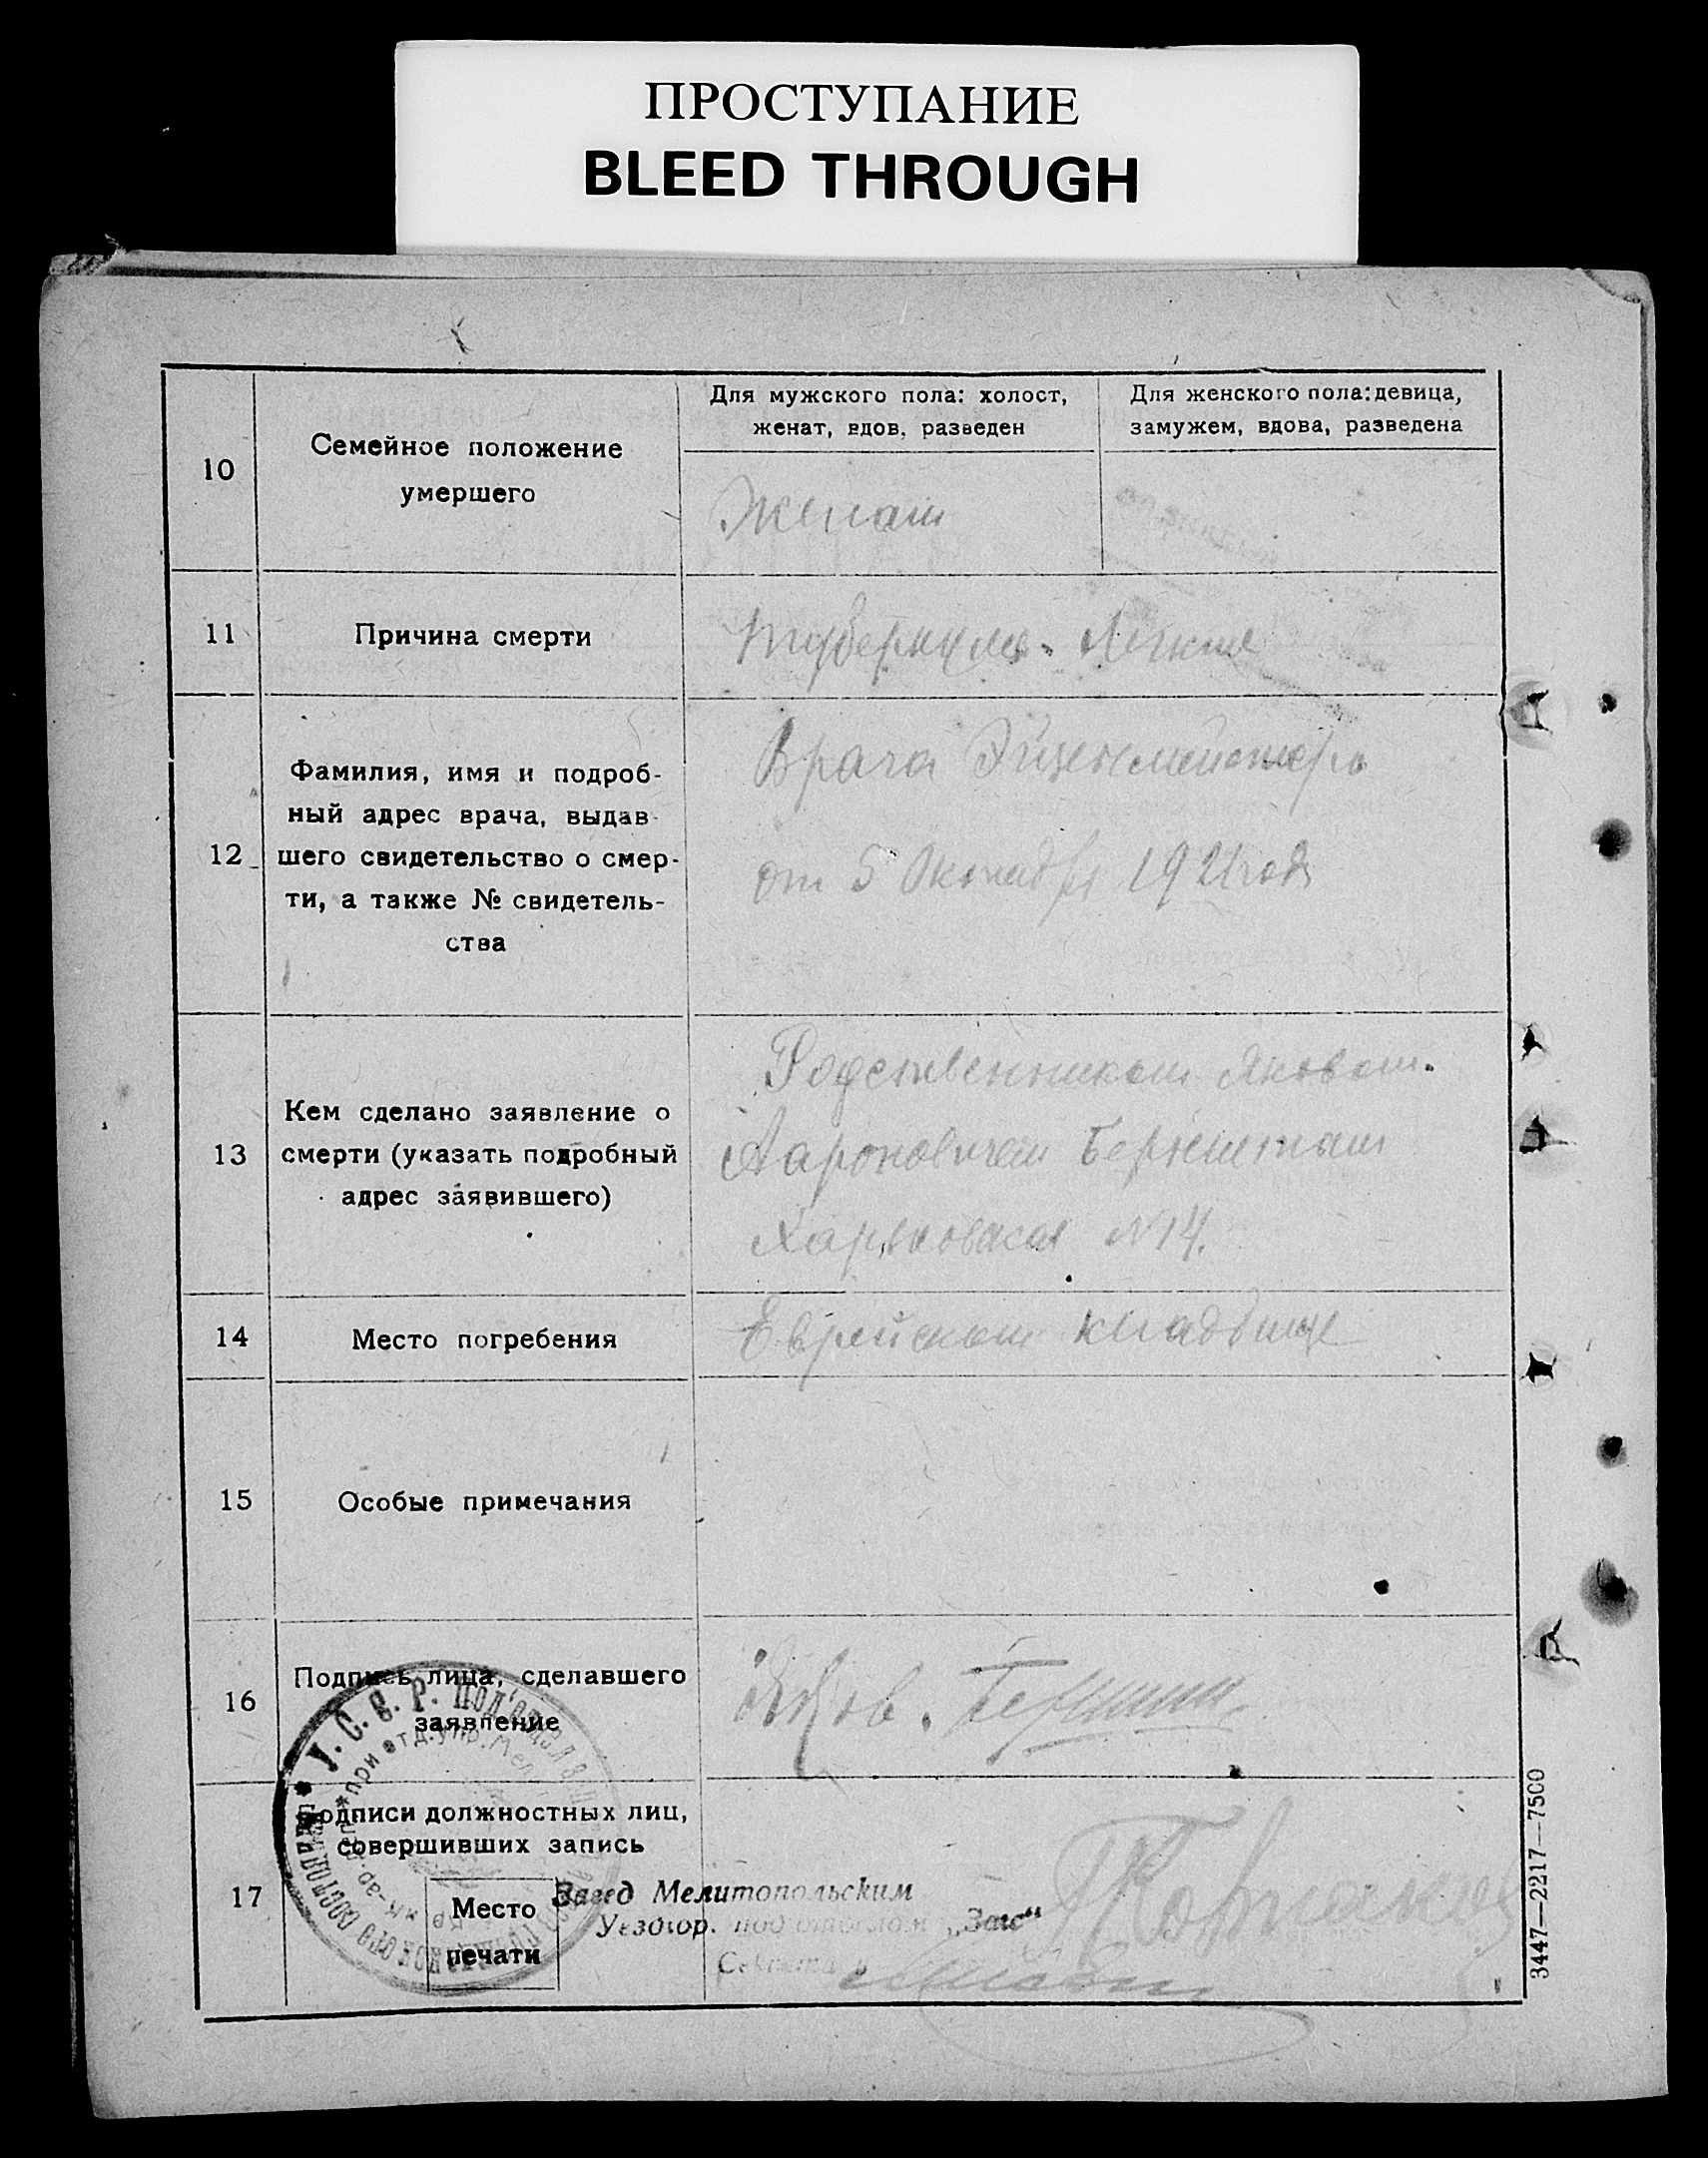 ПРОСТУПАНИЕ
BLEED THROUGH
10
Семейное положение
умершего
Для мужского пола: холост,
женат, вдов, разведен
Для женского пола: девица,
замужем, вдова, разведена
Женат
11
Причина смерти
Туберкулез Легких
12
Фамилия, имя и подроб-
ный адрес врача, выдав-
шего свидетельство о смер-
ти, а также № свидетель-
ства
Врача
от 5 Октября 1921 года
13
Кем сделано заявление о
смерти (указать подробный
адрес заявившего)
Родственником Яковом
Аароновичем Бернштам
Харьковская N 14.
14
Место погребения
Еврейском кладбище
15
Особые примечания
16
Подпись лица, сделавшего
заявление
Яков.
17
Подписи должностных лиц,
совершивших запись
Место
печати
У. С. С. Р. Под'отдел
при отд. упр.
Завед Мелитопольским
Уездгор. подотделом „Загс“
Секретарь
3447—2217—7500